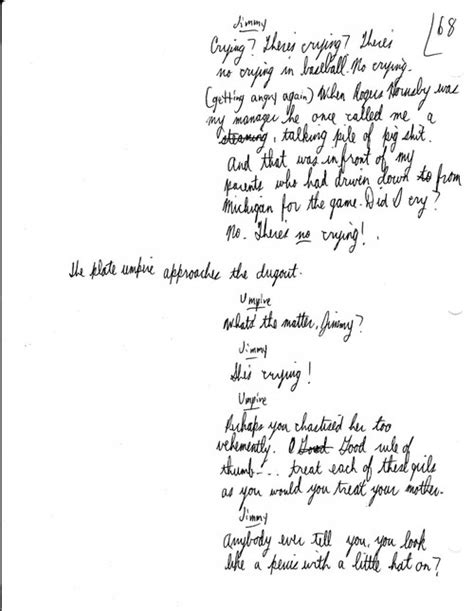 68
Jimmy
Crying? There's crying? There's
no crying in baseball. No crying.
(getting angry again) When Rogers Hornsby was
my manager he once called me a
steaming, talking pile of pig shit.
And that was in front of my
parents who had driven down to from
Michigan for the game. Did I cry?
No. There's no crying!
The plate umpire approaches the dugout.
Umpire
What's the matter, Jimmy?
Jimmy
She's crying!
Umpire
Perhaps you chasticed her too
vehemently. Good rule of
thumb... treat each of these girls
as you would you treat your mother.
Jimmy
Anybody ever tell you, you look
like a penis with a little hat on?